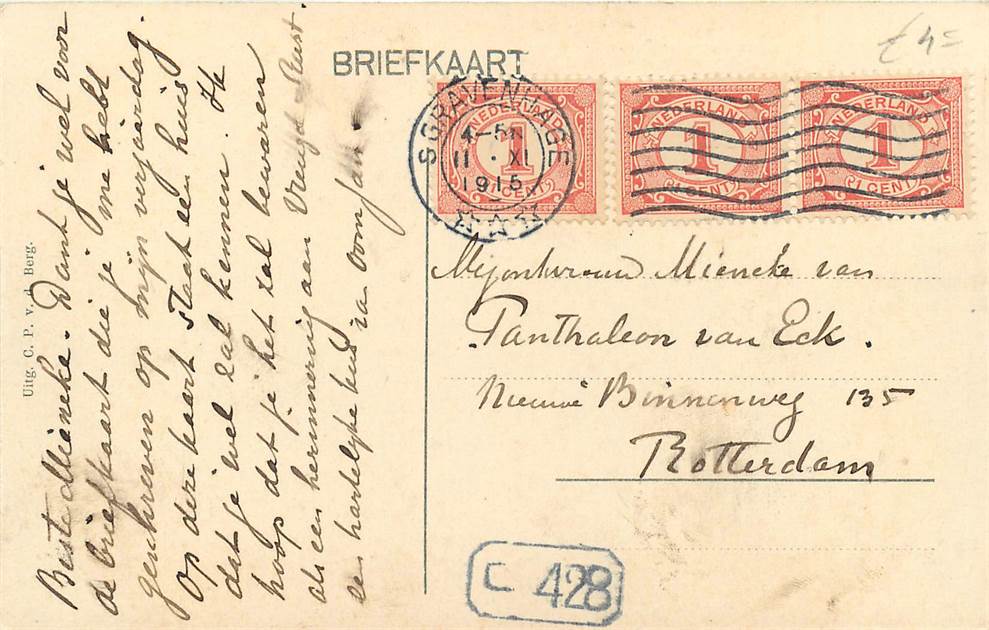 Beste Mieneke. Dank je wel voor
de briefkaart die je me hebt
geschreven op mijn verjaardag.
Op deze kaart staat een huis
dat je wel zal kennen. Ik
hoop dat je het zal bewaren
als een herinnering aan Vreugd & Rust.
een hartelijke kus van oom Jan.
Uitg. C. P. v. d. Berg.
BRIEFKAART
£ 4=
'S GRAVENHAGE
4-5
11 . XI
1915
NEDERLAND
1
CENT
NEDERLAND
1
CENT
NEDERLAND
1
CENT
Mejonkvrouw Mieneke van
Panthaleon van Eck.
Nieuwe Binnenweg 135
Rotterdam
C 428